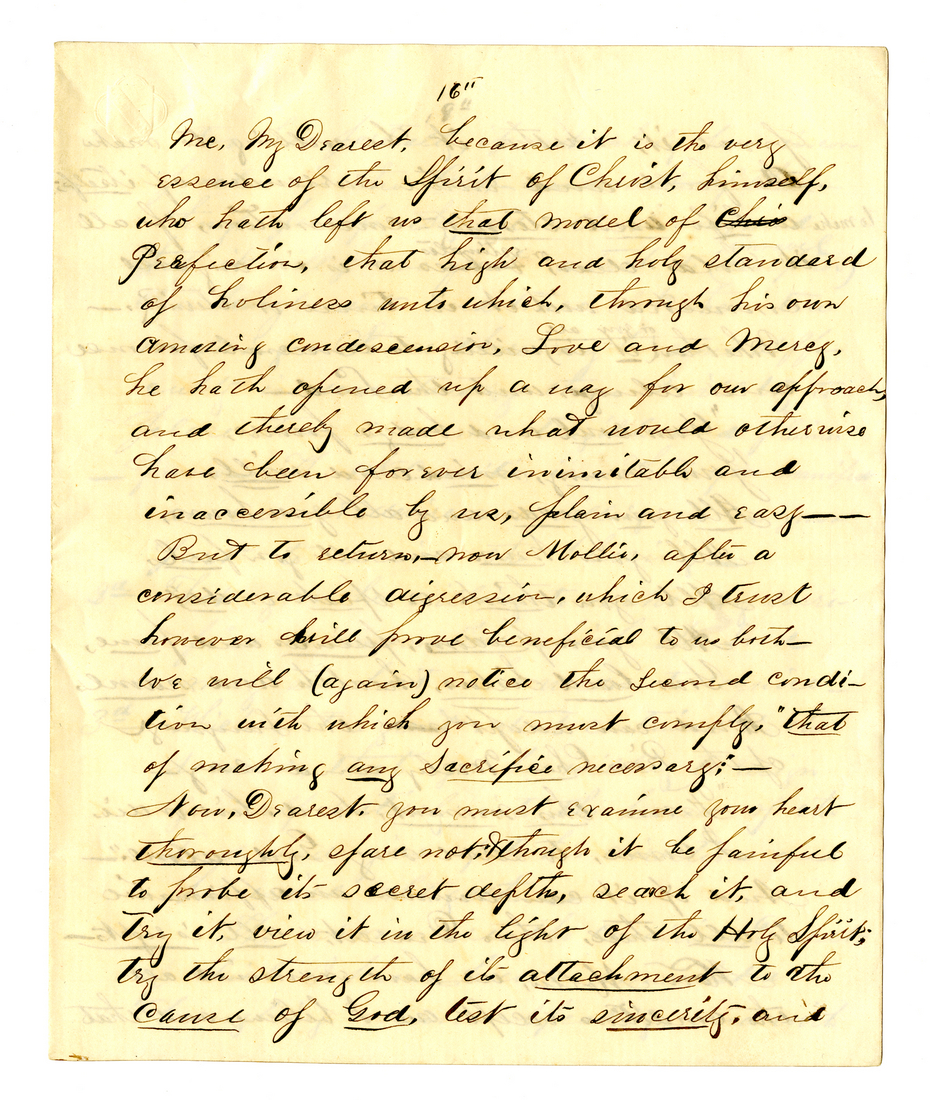 16"
Me, My Dearest, because it is the very
essence of the Spirit of Christ, himself,
who hath left us that model of Chris
Perfection, that high and holy standard
of holiness unto which, through his own
amazing condescension, Love and Mercy,
he hath opened up a way for our approach,
and thereby made what would otherwise
have been forever inimitable and
inaccessible by us, plain and easy——
But to return,—now Mollie, after a
considerable digression, which I trust
however will prove beneficial to us both—
We will (again) notice the second condi-
tion with which you must comply, "that
of making any Sacrifice necessary:"—
Now, Dearest, you must examine your heart
thoroughly, spare not, though it be painful
to probe its secret depths, seach it, and
try it, view it in the light of the Holy Spirit;
try the strength of its attachment to the
Cause of God, test its sincerity, and